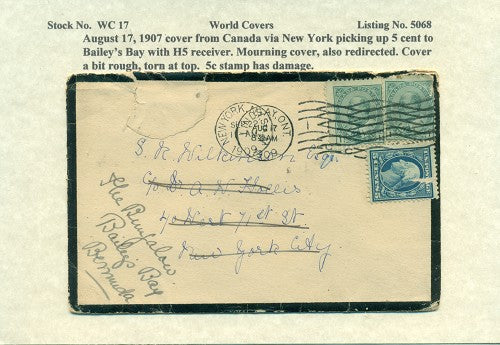 Stock No. WC 17 World Covers Listing No. 5068
August 17, 1907 cover from Canada via New York picking up 5 cent to
Bailey's Bay with H5 receiver. Mourning cover, also redirected. Cover
a bit rough, torn at top. 5c stamp has damage.
NEW YORK
ONT.
AUG 17
AM
S. R. Wilkinson Esqr.
40 West 71st St.
New York City
The Bungalow
Bailey's Bay
Bermuda